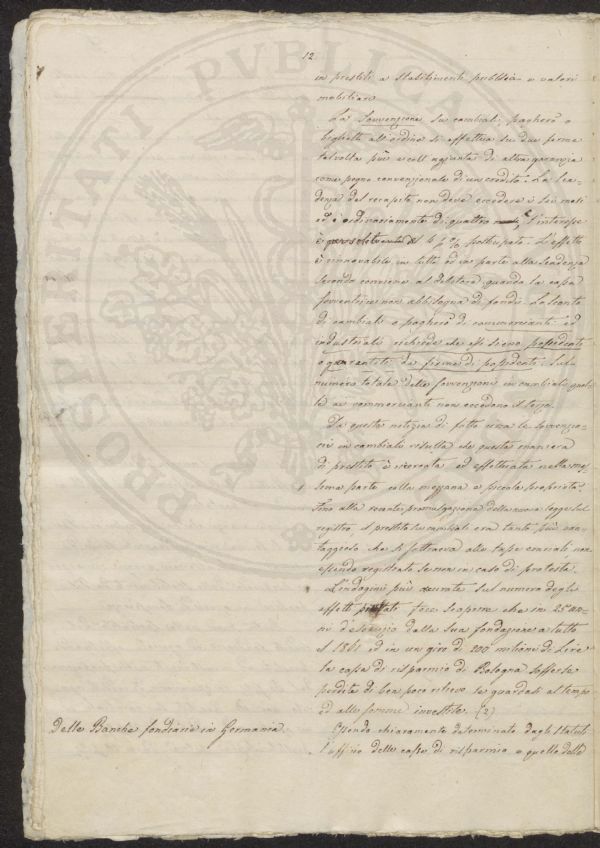 12
in prestiti a stabilimenti pubblici o valori
mobiliari
La sovvenzione su cambiali, pagherò o
biglietti all'ordine si effettua su due firme
talvolta più e coll'aggiunta di altra garanzia
come pegno convenzionale di un credito. La sca-
denza del recapito non deve eccedere i sei mesi
ed è ordinariamente di quattro L'interesse
è 4 ½ % posticipato. L'effetto
è rinnovabile in tutto od in parte alla scadenza
secondo conviene al debitore quando la cassa
sovventrice non abbisogna di fondi. Lo sconto
di cambiali o pagherò di commercianti ed
industriali richiede che essi sieno possidenti
o guarentiti da firme di possidenti. Sul
numero totale delle sovvenzioni in cambiali quel-
le ai commercianti non eccedono il terzo.
Da queste notizie di fatto circa le sovvenzio-
ni in cambiali risulta che questa maniera
di prestito è ricercata ed effettuata nella mas-
sima parte colla mezzana e piccola proprietà.
Fino alla recente promulgazione della nuova legge sul
registro, il prestito su cambiali era tanto più van-
taggioso che si sottraeva alle tasse erariali, non
essendo registrato se non in caso di protesto.
L'indagini più accurate sul numero degli
effetti fece sapere che in 25 an-
ni d'esercizio dalla sua fondazione a tutto
il 1861 ed in un giro di 200 milioni di Lire
la cassa di risparmio di Bologna sofferse
perdite di ben poco rilievo se guardasi al tempo
ed alle somme investite. (2)
Delle Banche fondiarie in Germania.
Essendo chiaramente determinato dagli statuti
l'uffizio delle casse di risparmio e quello delle